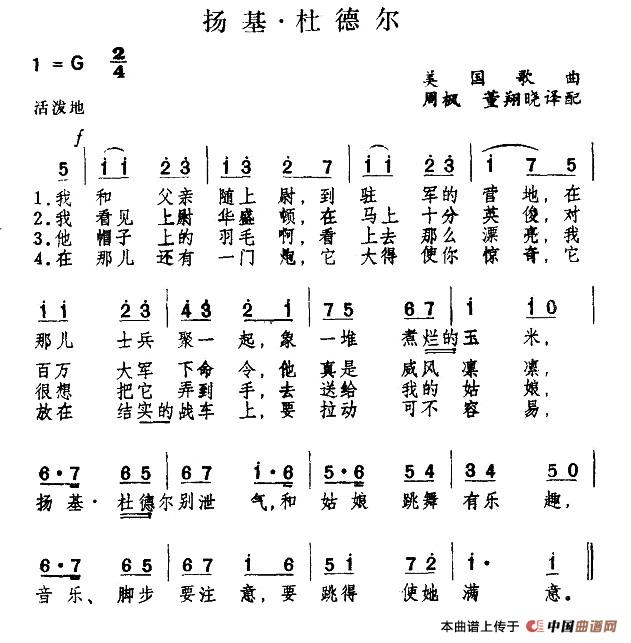 扬基·杜德尔
1=G 2/4
美国歌曲
周枫 董翔晓译配
活泼地
f
5 | i i 2 3 | i 3 2 7 | i i 2 3 | i 7 5 |
1.我 和 父亲 随上 尉,到 驻 军的 营 地,在
2.我 看见 上尉 华盛 顿,在 马上 十分 英 俊,对
3.他 帽子 上的 羽毛 啊,看 上去 那么 漂 亮,我
4.在 那儿 还有 一门 炮,它 大得 使你 惊 奇,它
i i 2 3 | 4 3 2 i | 7 5 6 7 | i i 0 |
那儿 士兵 聚一 起,象 一堆 煮烂的玉 米,
百万 大军 下命 令,他 真是 威风 凛 凛,
很想 把它 弄到 手,去 送给 我的 姑 娘,
放在 结实的战车 上,要 拉动 可不 容 易,
6·7 6 5 | 6 7 i·6 | 5·6 5 4 | 3 4 5 0 |
扬 基·杜德尔别泄 气,和 姑娘 跳舞 有乐 趣,
6·7 6 5 | 6 7 i 6 | 5 i 7 2 | i· i ‖
音乐、脚步 要注 意,要 跳得 使她 满 意。
本曲谱上传于 中国曲谱网